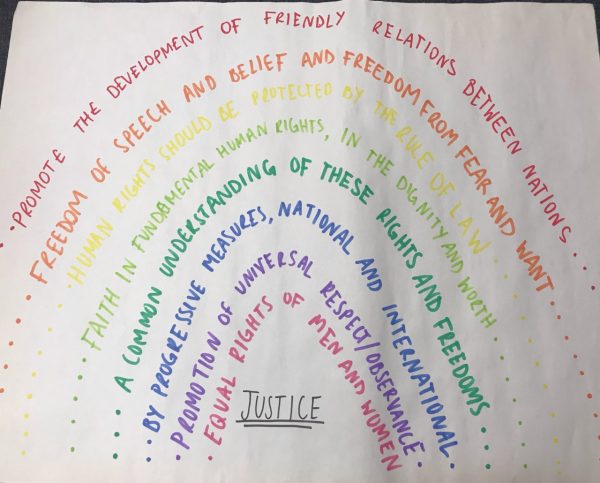 PROMOTE THE DEVELOPMENT OF FRIENDLY RELATIONS BETWEEN NATIONS
FREEDOM OF SPEECH AND BELIEF AND FREEDOM FROM FEAR AND WANT
HUMAN RIGHTS SHOULD BE PROTECTED BY THE RULE OF LAW
FAITH IN FUNDAMENTAL HUMAN RIGHTS, IN THE DIGNITY AND WORTH
A COMMON UNDERSTANDING OF THESE RIGHTS AND FREEDOMS
BY PROGRESSIVE MEASURES, NATIONAL AND INTERNATIONAL
PROMOTION OF UNIVERSAL RESPECT/OBSERVANCE
EQUAL RIGHTS OF MEN AND WOMEN
JUSTICE